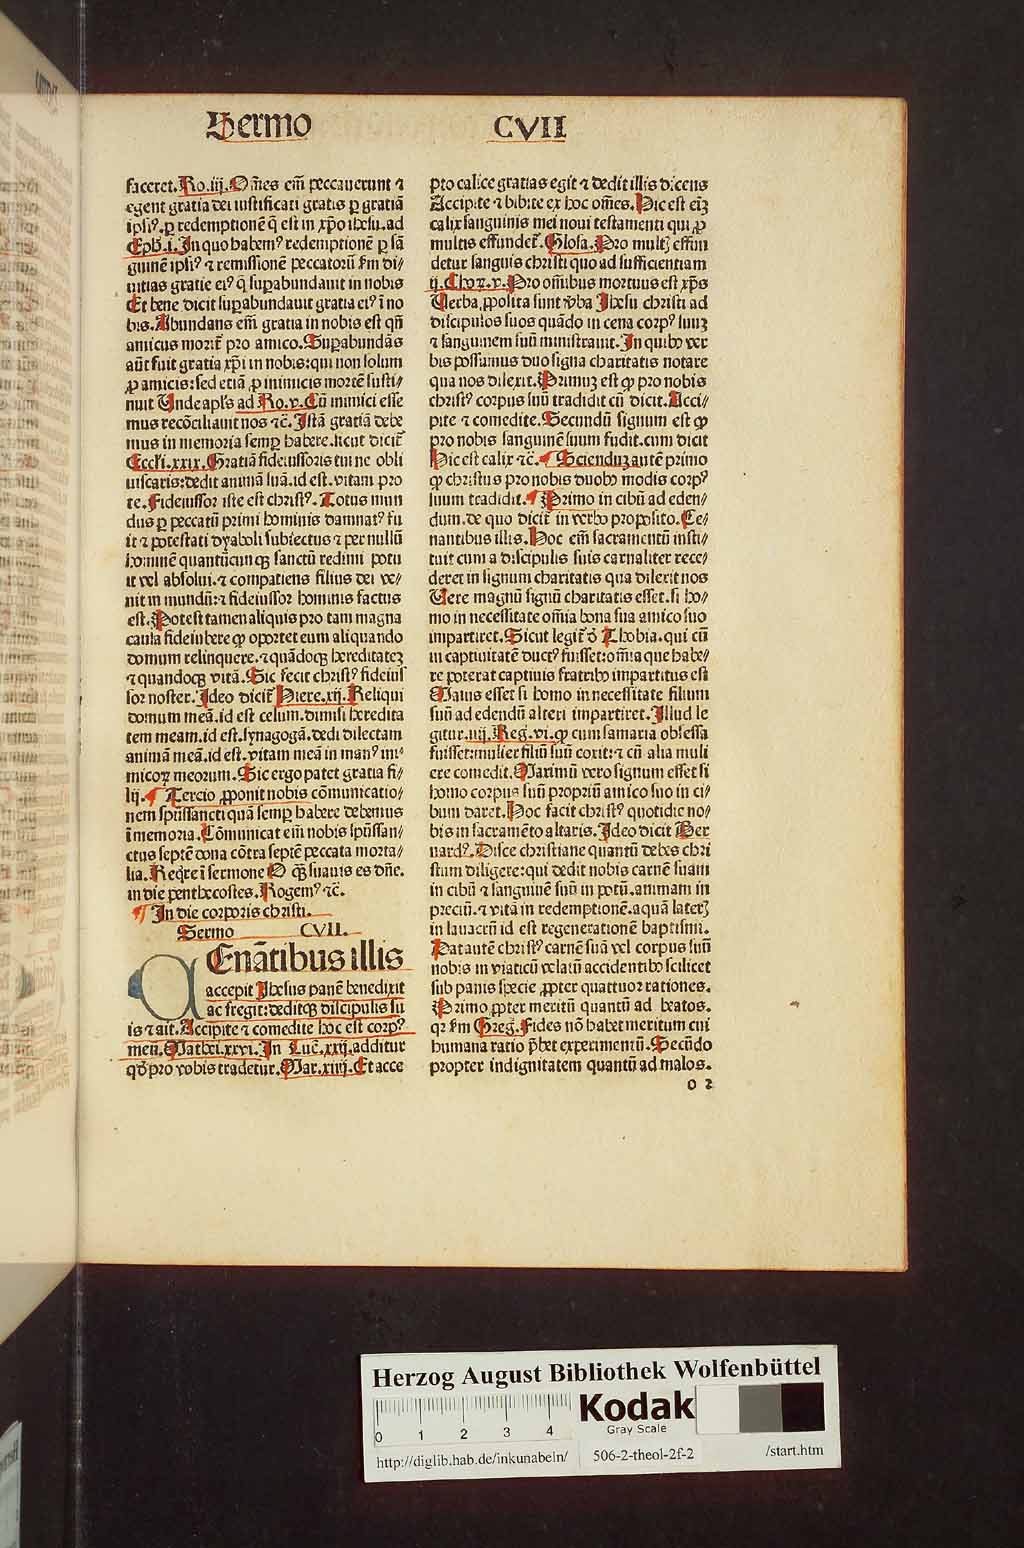 Sermo CVII
faceret. Ro.iij. Om̃es em̃ peccauerunt ⁊
egent gratia dei iustificati gratis ꝑ gratiã
ipsiꝰ. ꝑ redemptionẽ q̃ est in xp̃o ihesu. ad
Eph̃.i. In quo habemꝰ redemptionẽ ꝑ sã
guinẽ ipsiꝰ ⁊ remissionẽ peccatorũ ẜm di⸗
uitias gratie eiꝰ q̃ suꝑabundauit in nobis
Et bene dicit suꝑabundauit gratia eiꝰ ĩ no
bis. Abundans em̃ gratia in nobis est qñ
amicus morit̃ pro amico. Suꝑabundãs
aũt fuit gratia xp̃i in nobis: qui non solum
ꝓ amicis: sed etiã ꝓ inimicis mortẽ susti⸗
nuit Unde apl̃s ad Ro.v. Cũ inimici esse
mus recõciliauit nos ⁊c̃. Istã gratiã debe
mus in memoria semꝑ habere. sicut dicit̃
Eccl̃i.xxix. Gratiã fideiussoris tui ne obli
uiscaris: dedit animã suã. id est. vitam pro
te. Fideiussor iste est christꝰ. Totus mun
dus ꝑ peccatũ primi hominis damnatꝰ fu
it ⁊ potestati dyaboli subiectus ⁊ per nullũ
hominẽ quantũcunqꝫ sanctũ redimi potu
it vel absolui. ⁊ compatiens filius dei ve⸗
nit in mundũ: ⁊ fideiussor hominis factus
est. Potest tamen aliquis pro tam magna
causa fideiubere ꝙ oportet eum aliquando
domum relinquere. ⁊ quãdoqꝫ hereditateꝫ
⁊ quandoqꝫ vitã. Sic fecit christꝰ fideiuſ
sor noster. Ideo dicit̃ Hiere.xij. Reliqui
domum meã. id est celum. dimisi heredita
tem meam. id est. synagogã. dedi dilectam
animã meã. id est. vitam meã in manꝰ ini⸗
micoꝝ meorum. Sic ergo patet gratia fi⸗
lij. ¶ Tercio ꝓponit nobis cõmunicatio⸗
nem spũssancti quã semꝑ habere debemus
ĩ memoria. Cõmunicat em̃ nobis spũssan⸗
ctus septẽ dona cõtra septẽ peccata morta⸗
lia. Req̃re ĩ sermone O q̃ꝫ suauis es dñe.
in die penthecostes. Rogemꝰ ⁊c̃.
¶ In die corporis christi.
Sermo CVII.
CEnãtibus illis
accepit Ihesus panẽ benedixit
ac fregit: deditqꝫ discipulis su
is ⁊ ait. Accipite ⁊ comedite hoc est corpꝰ
meũ. Mathei.xxvi. In Luc̃.xxij. additur
qđ pro vobis tradetur. Mar.xiiij. Et acce
pto calice gratias egit ⁊ dedit illis dicens
Accipite ⁊ bibite ex hoc om̃es. Hic est eĩꝫ
calix sanguinis mei noui testamenti qui ꝓ
multis effundet̃. Glosa. Pro multꝫ effun
detur sanguis christi quo ad sufficientiam
ij. Choꝝ.v. Pro om̃ibus mortuus est xp̃s
Uerba ꝓposita sunt ṽba Ihesu christi ad
discipulos suos quãdo in cena corpꝰ suuꝫ
⁊ sanguinem suũ ministrauit. In quibꝰ ver
bis possumus duo signa charitatis notare
qua nos dilexit. Primuꝫ est ꝙ pro nobis
christꝰ corpus suũ tradidit cũ dicit. Acci⸗
pite ⁊ comedite. Secundũ signum est ꝙ
pro nobis sanguinẽ suum fudit. cum dicit
Hic est calix ⁊c̃. ¶ Sciendum autẽ primo
ꝙ christus pro nobis duobꝰ modis corpꝰ
suum tradidit. ¶ Primo in cibũ ad eden⸗
dum. de quo dicit̃ in verbo proposito. Ce⸗
nantibus illis. Hoc em̃ sacramentũ insti⸗
tuit cum a discipulis suis carnaliter rece⸗
deret in signum charitatis qua dilexit nos
Uere magnũ signũ charitatis esset. si ho⸗
mo in necessitate om̃ia bona sua amico suo
impartiret. Sicut legit̃ đ Thobia. qui cũ
in captiuitatẽ ductꝰ fuisset: om̃ia que habe⸗
re poterat captiuis fratribꝰ impartitus est
Maius esset si homo in necessitate filium
suũ ad edendũ alteri impartiret. Illud le
gitur.iiij. Reg.vi. ꝙ cum samaria obsessa
fuisset: mulier filiũ suũ coxit: ⁊ cũ alia muli
ere comedit. Maximũ vero signum esset si
homo corpus suũ propriũ amico suo in ci⸗
bum daret. Hoc facit christꝰ quotidie no⸗
bis in sacramẽto altaris. Ideo dicit Ber
nardꝰ. Disce christiane quantũ debes chri
stum diligere: qui dedit nobis carnẽ suam
in cibũ ⁊ sanguinẽ suũ in potũ. animam in
preciũ. ⁊ vitã in redemptionẽ. aquã laterꝫ
in lauacrũ id est regenerationẽ baptismi.
Dat autẽ christꝰ carnẽ suã vel corpus suũ
nobis in viaticũ velatũ accidentibꝰ scilicet
sub panis specie ꝓpter quattuor rationes.
Primo ꝓpter meritũ quantũ ad beatos.
qꝛ ẜm Greg̃. Fides nõ habet meritum cui
humana ratio p̃bet experimentũ. Secũdo
propter indignitatem quantũ ad malos.
o 2
Herzog August Bibliothek Wolfenbüttel
0 1 2 3 4
Kodak
Gray Scale
http://diglib.hab.de/inkunabeln/ 506-2-theol-2f-2 /start.htm